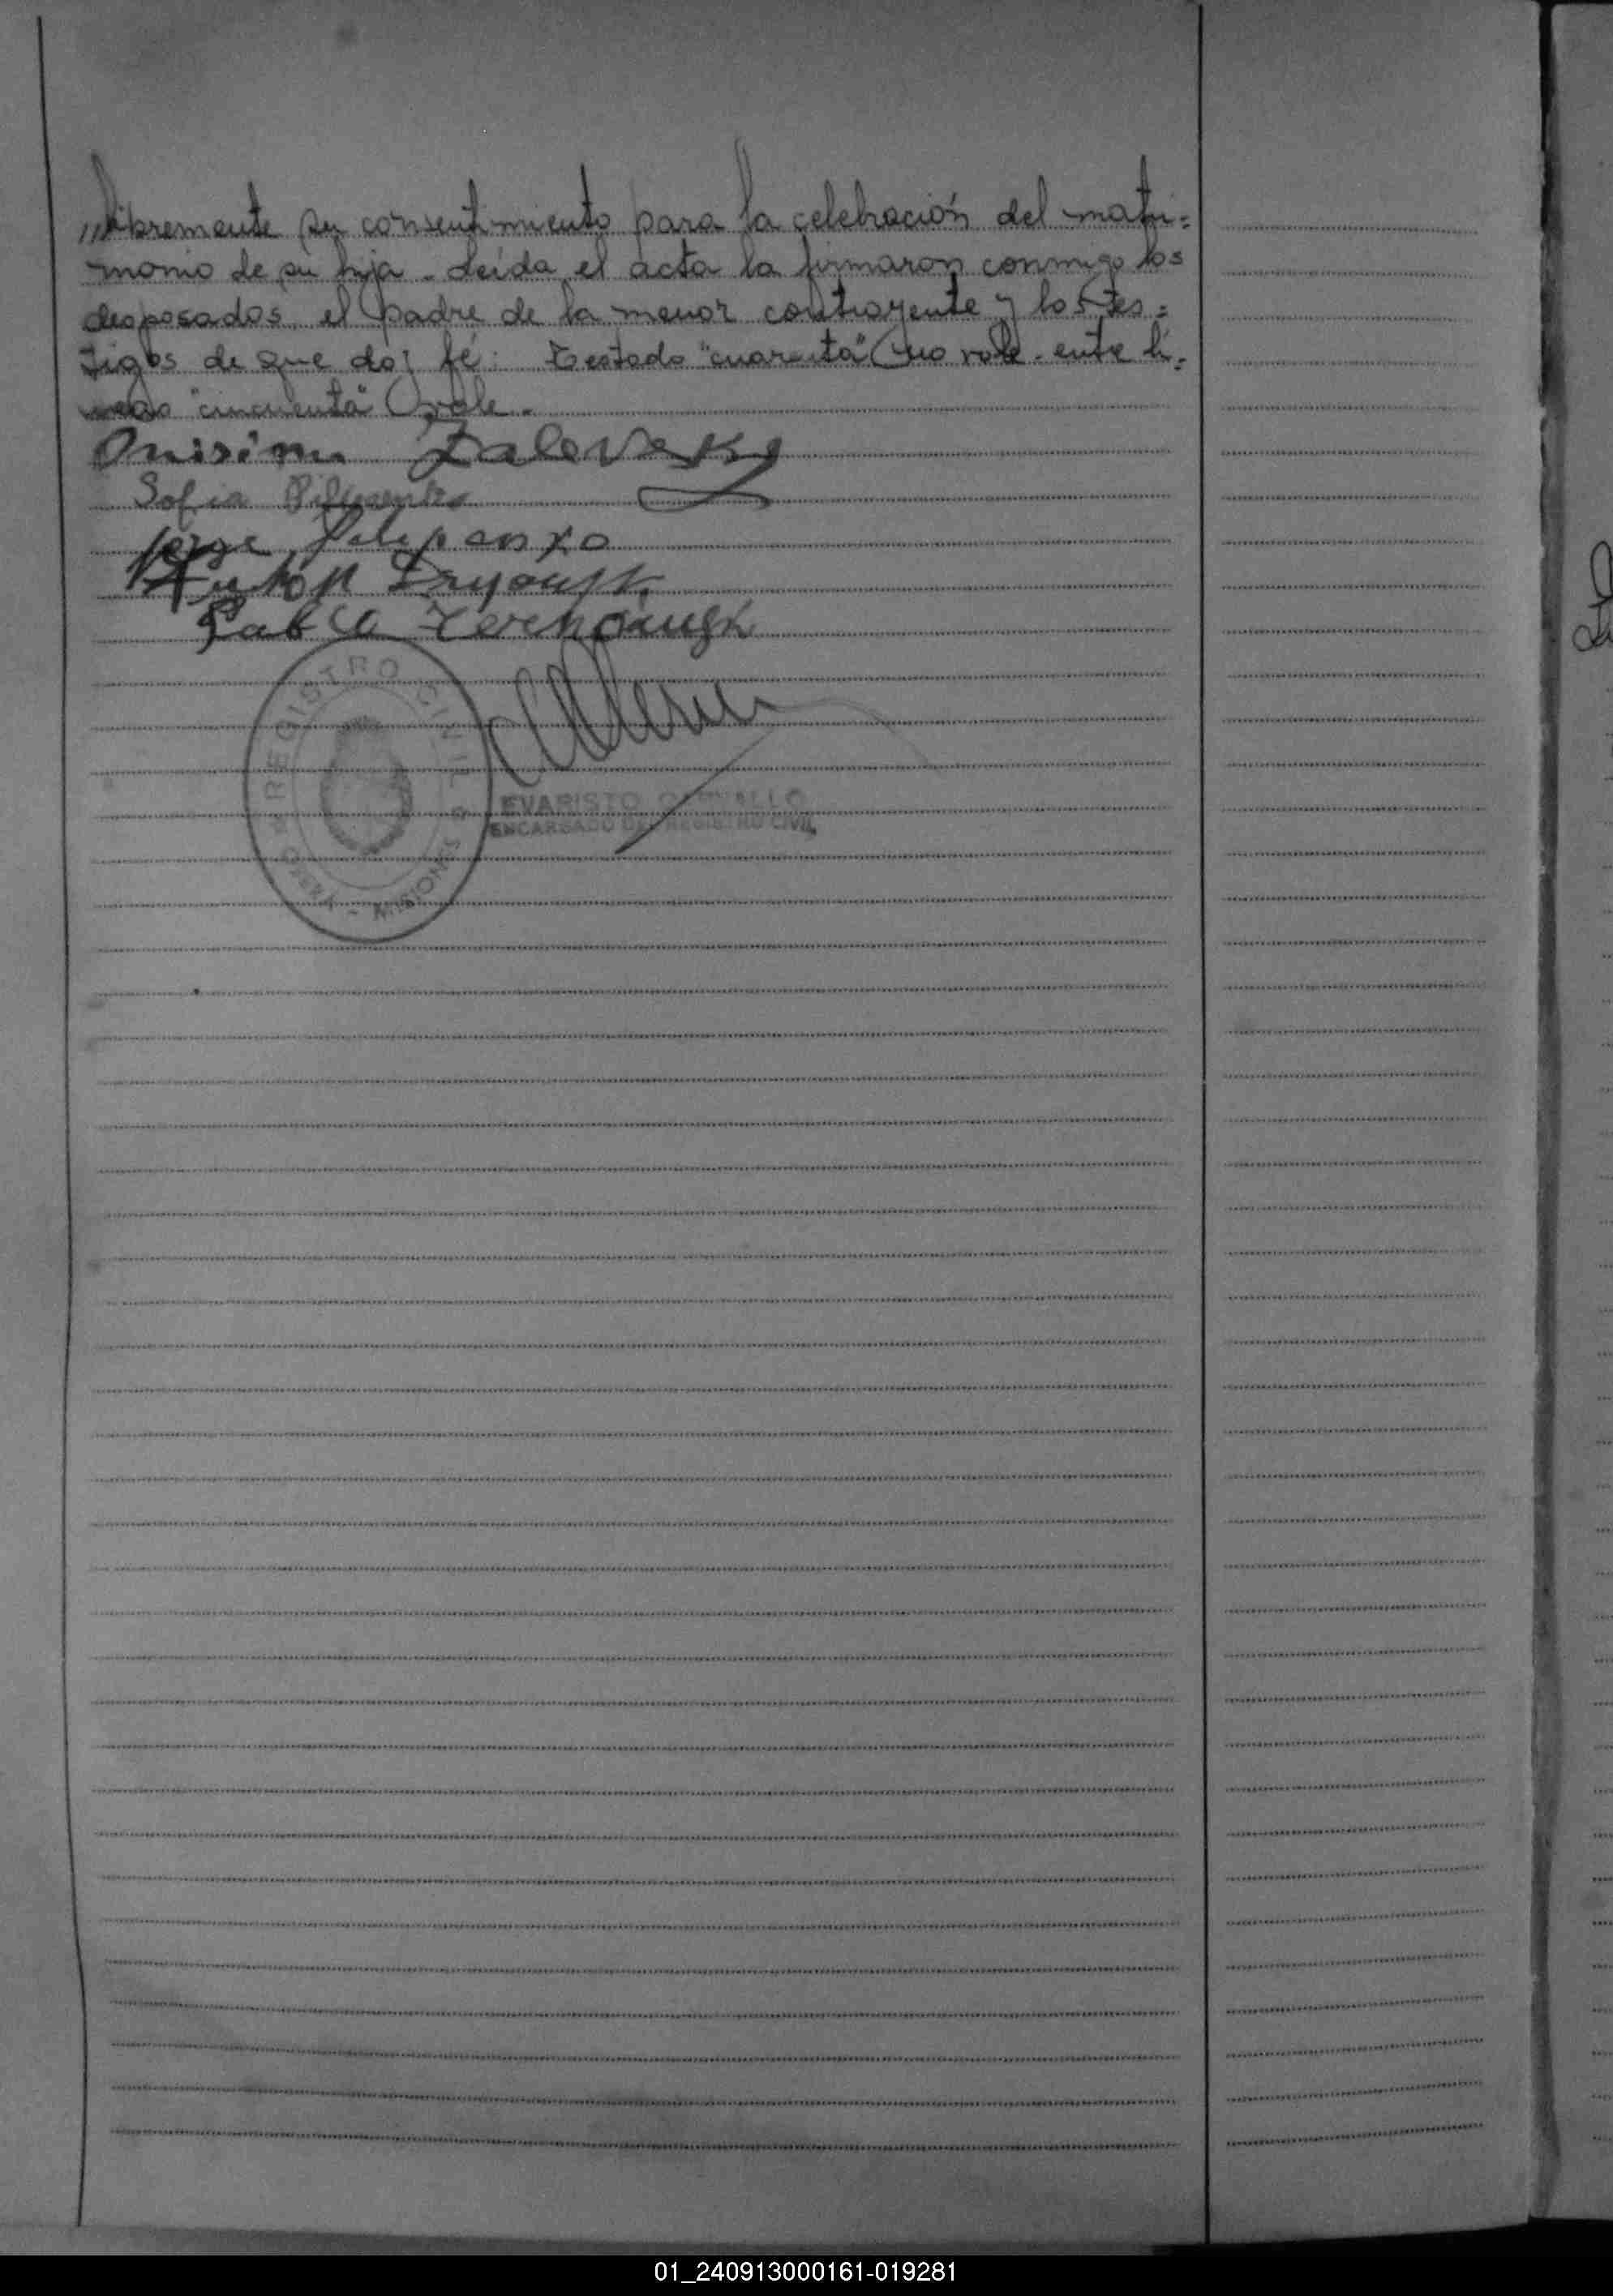 ,,,libremente su consentimiento para la celebración del matri=
monio de su hija - Leída el acta la firmaron conmigo los
desposados, el padre de la menor contrayente y los tes=
tigos de que doy fé: Testado "cuarenta" no vale - entre lí=
neas "cincuenta" vale -
Onisim Zalevsky
Sofia
Jorge Pilipenko
Anton
REGISTRO CIVIL
OBERA - MISIONES
EVARISTO
ENCARGADO DEL REGISTRO CIVIL
01_240913000161-019281